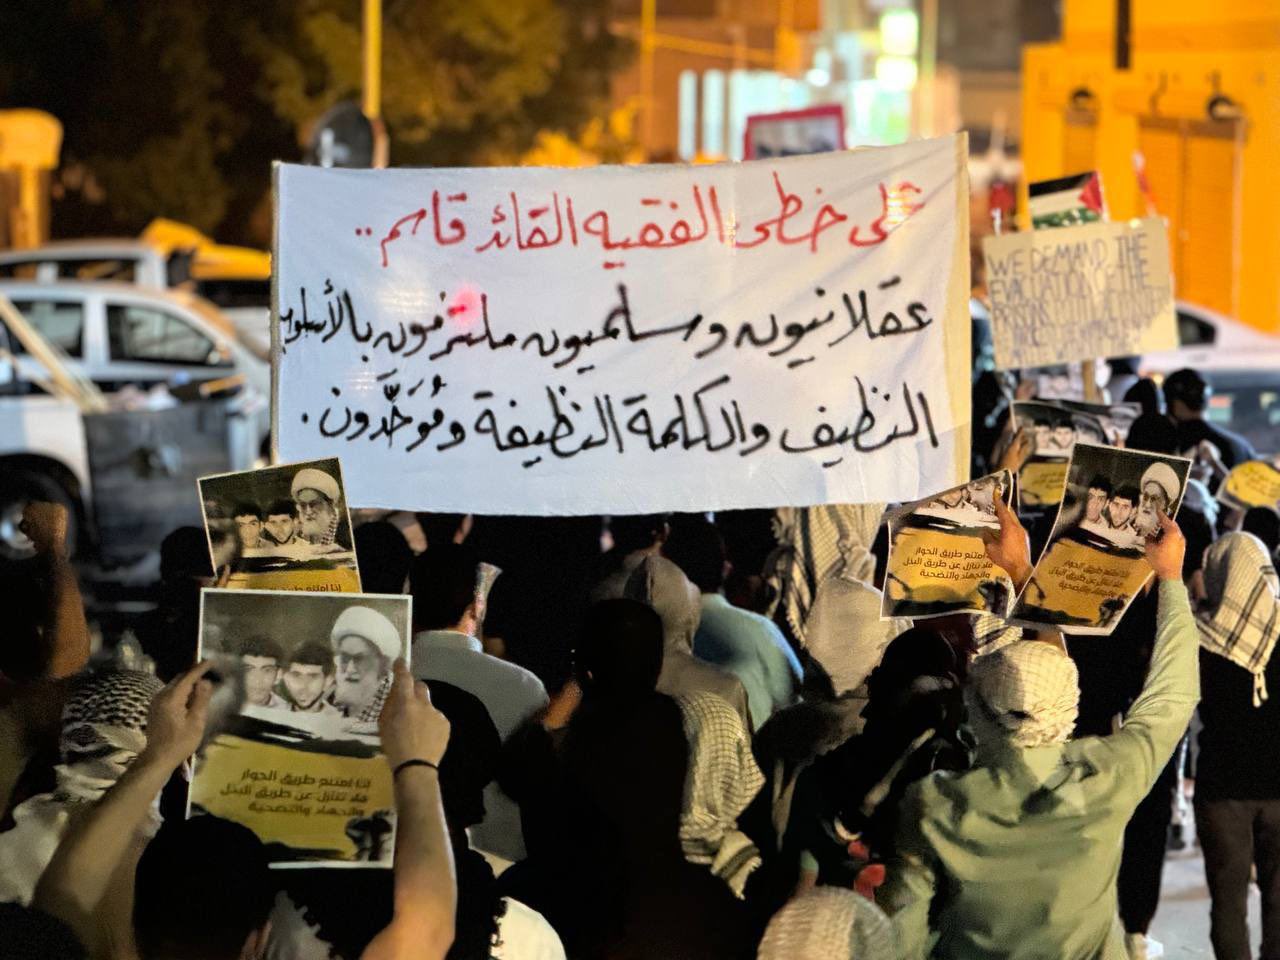 على خطى الفقيه القائد قاسم..
عقلانيون وسلميون ملتزمون بالأسلوب
النظيف والكلمة النظيفة ومُوَحِّدون.
WE DEMAND THE
EVACUATION OF THE
PRISONS
إذا امتنع طريق الحوار
فلا تنازل عن طريق البذل
والجهاد والتضحية
إذا امتنع طريق الحوار
فلا تنازل عن طريق البذل
والجهاد والتضحية
إذا امتنع طريق الحوار
إذا امتنع طريق الحوار
فلا تنازل عن طريق البذل
والجهاد والتضحية